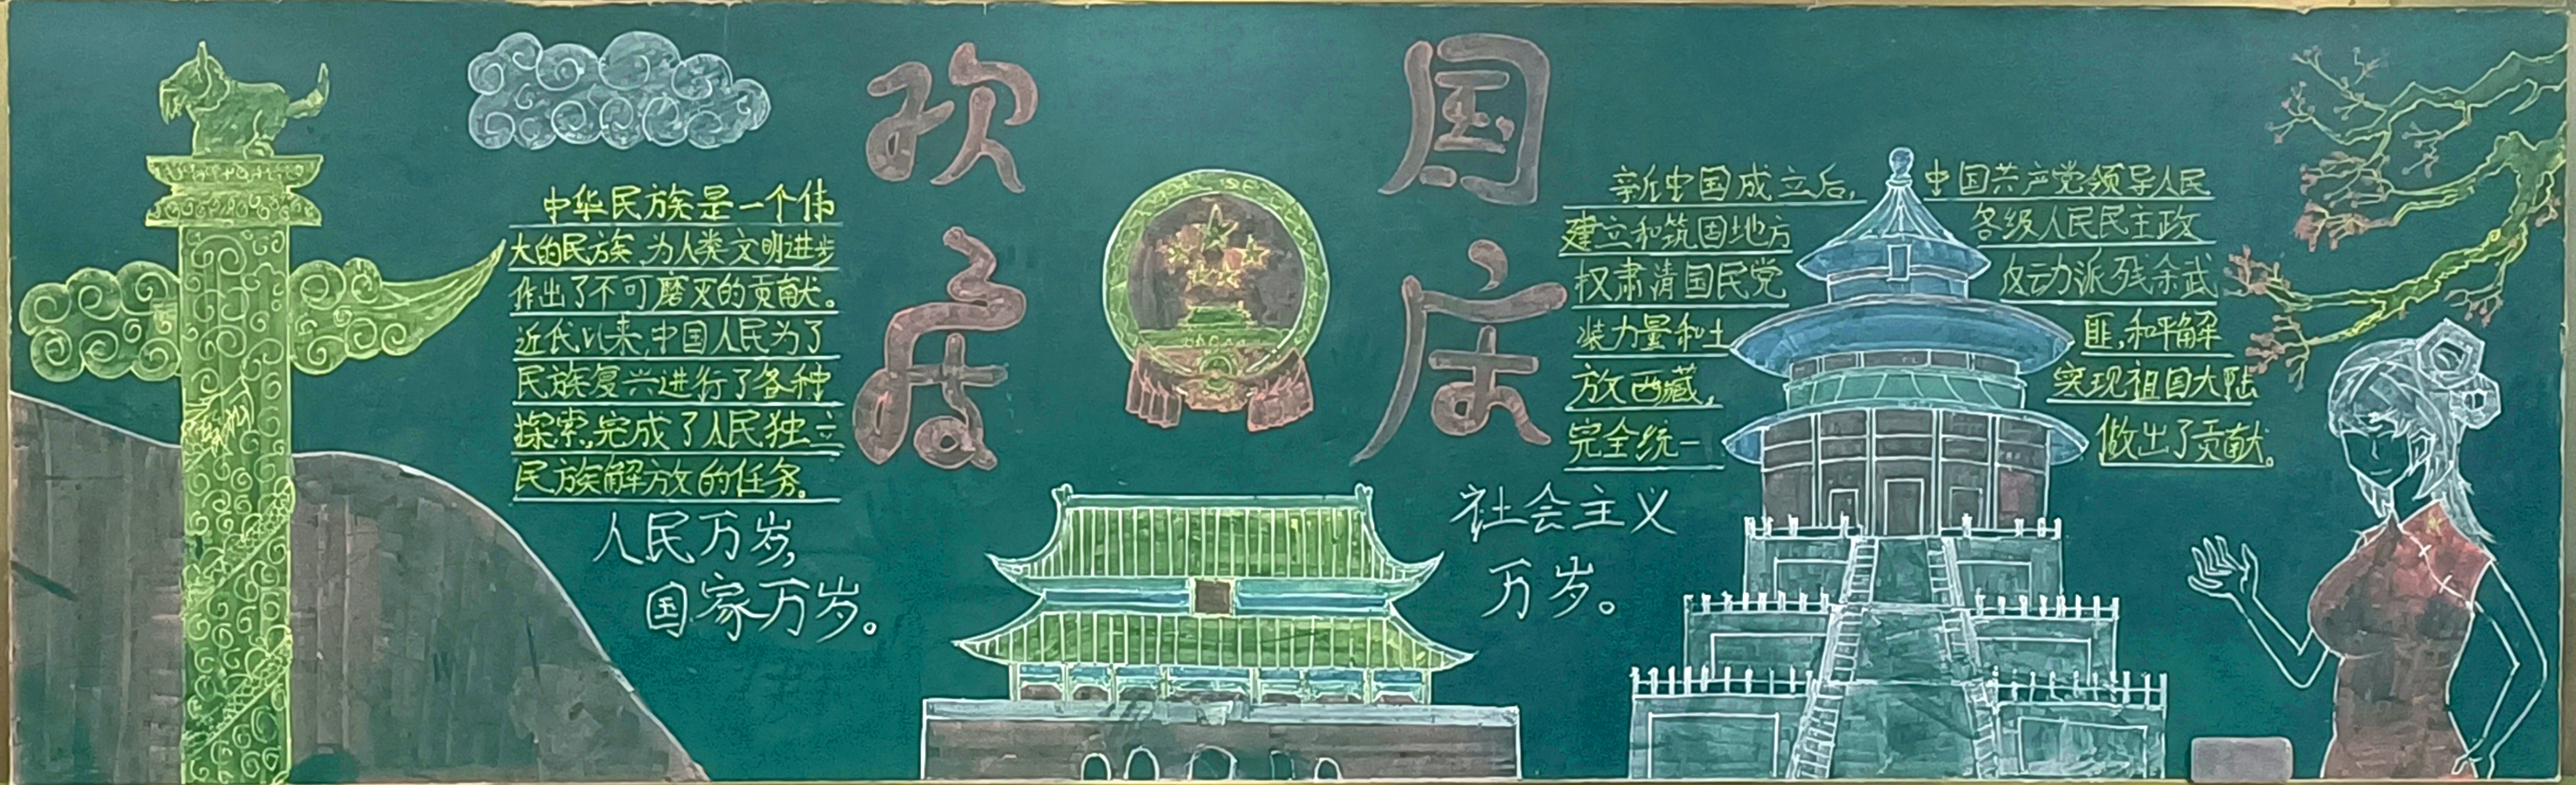 欢度
国庆
中华民族是一个伟
大的民族,为人类文明进步
作出了不可磨灭的贡献。
近代以来,中国人民为了
民族复兴进行了各种
探索,完成了人民独立
民族解放的任务。
人民万岁,
国家万岁。
新中国成立后,中国共产党领导人民
建立和筑固地方各级人民民主政
权肃清国民党反动派残余武
装力量和土匪,和平解
放西藏,实现祖国大陆
完全统一做出了贡献。
社会主义
万岁。